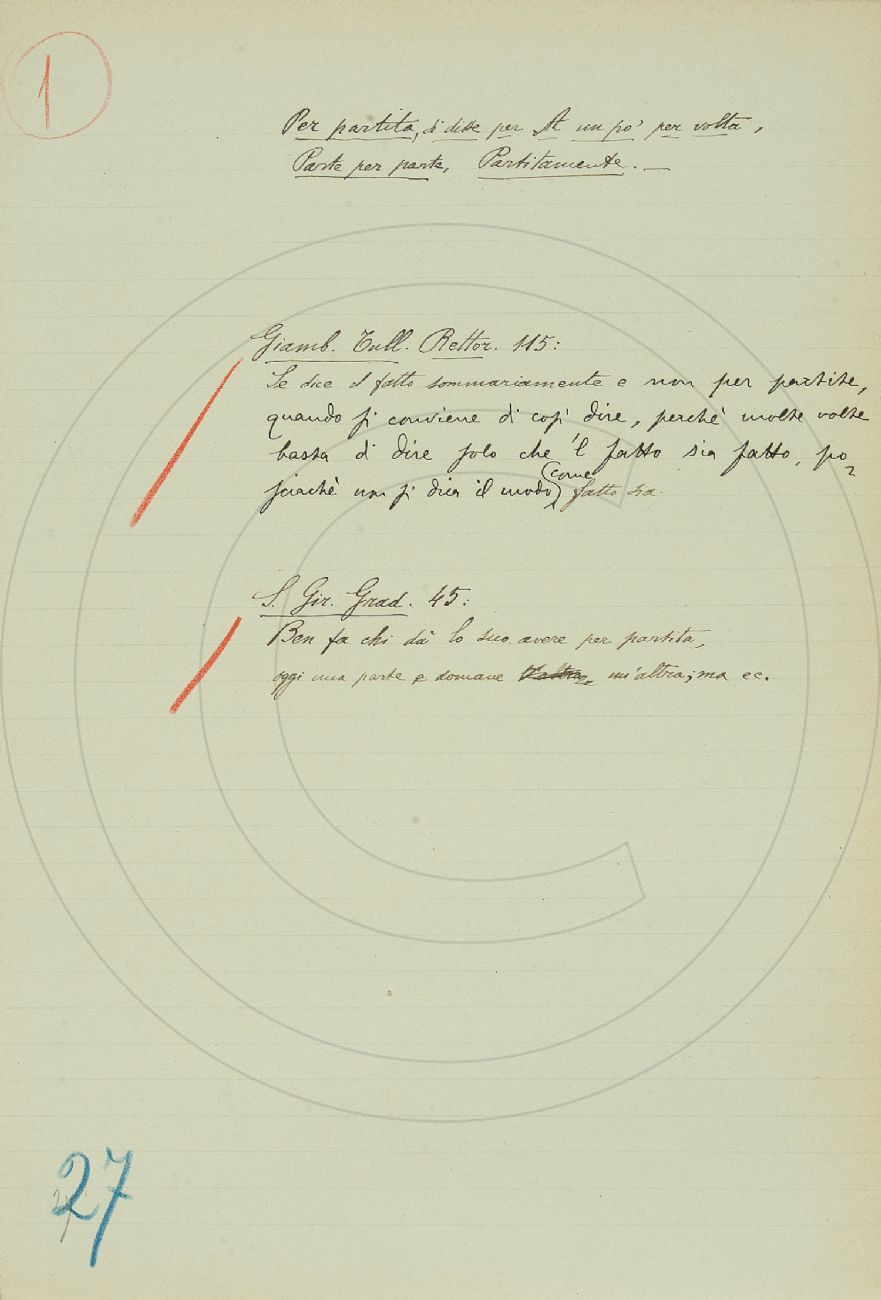 1
Per partita, si disse per A un po' per volta,
Parte per parte, Partitamente. —
Giamb. Tull. Rettor. 115:
Se dice il fatto sommariamente e non per partite,
quando si conviene di così dire, perchè molte volte
basta di dire solo che 'l fatto sia fatto, po=
sciachè non si dica il modo come fatto sia.
S. Gir. Grad. 45:
Ben fa chi dà lo suo avere per partita,
oggi una parte e domane un'altra; ma ec.
27